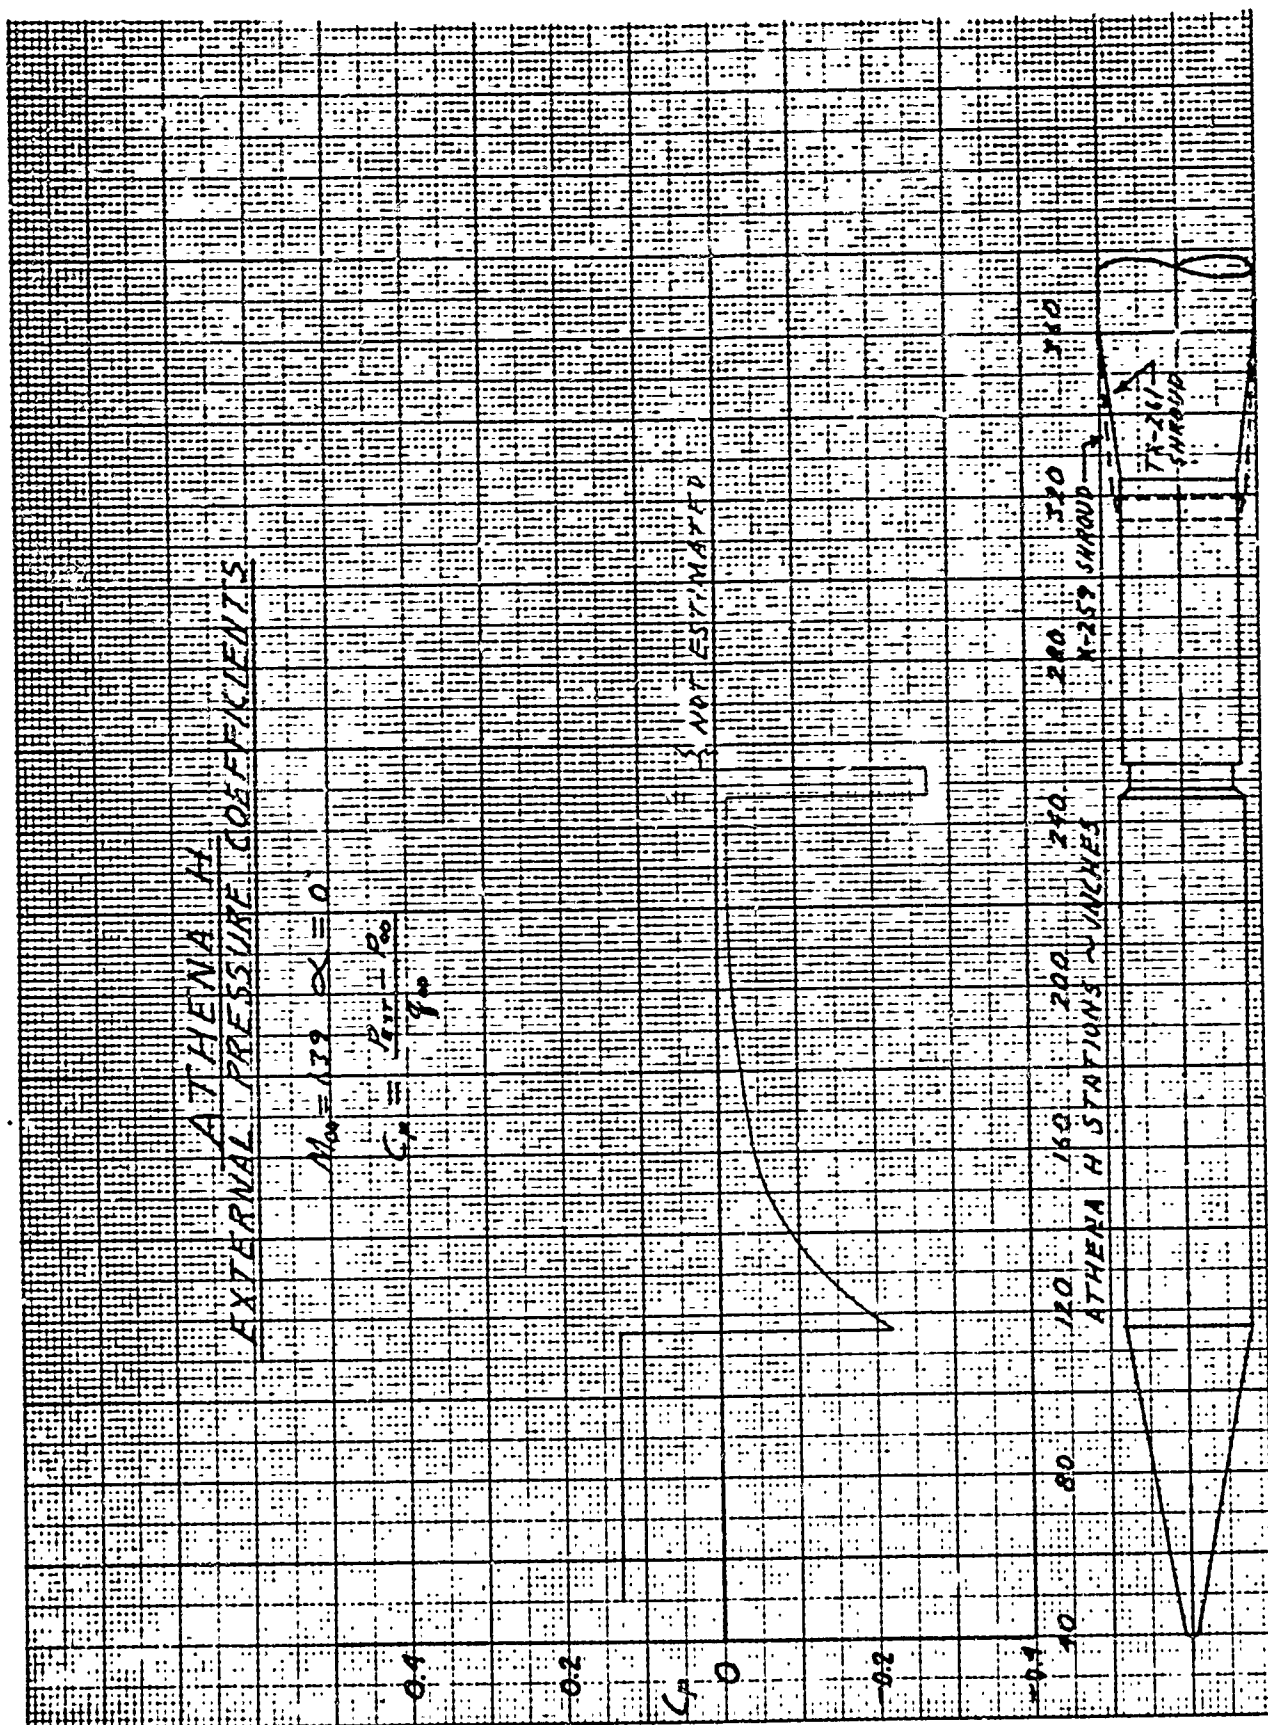 ATHENA H
EXTERNAL PRESSURE COEFFICIENTS
M∞ = 1.39 α = 0
Cp = (PEXT − P∞) / q∞
0.4
0.2
Cp
0
-0.2
-0.4
} NOT ESTIMATED
40 80 120 160 200 240 280 320 360
ATHENA H STATIONS ~ INCHES
X-259 SHROUD
TX-261
SHROUD